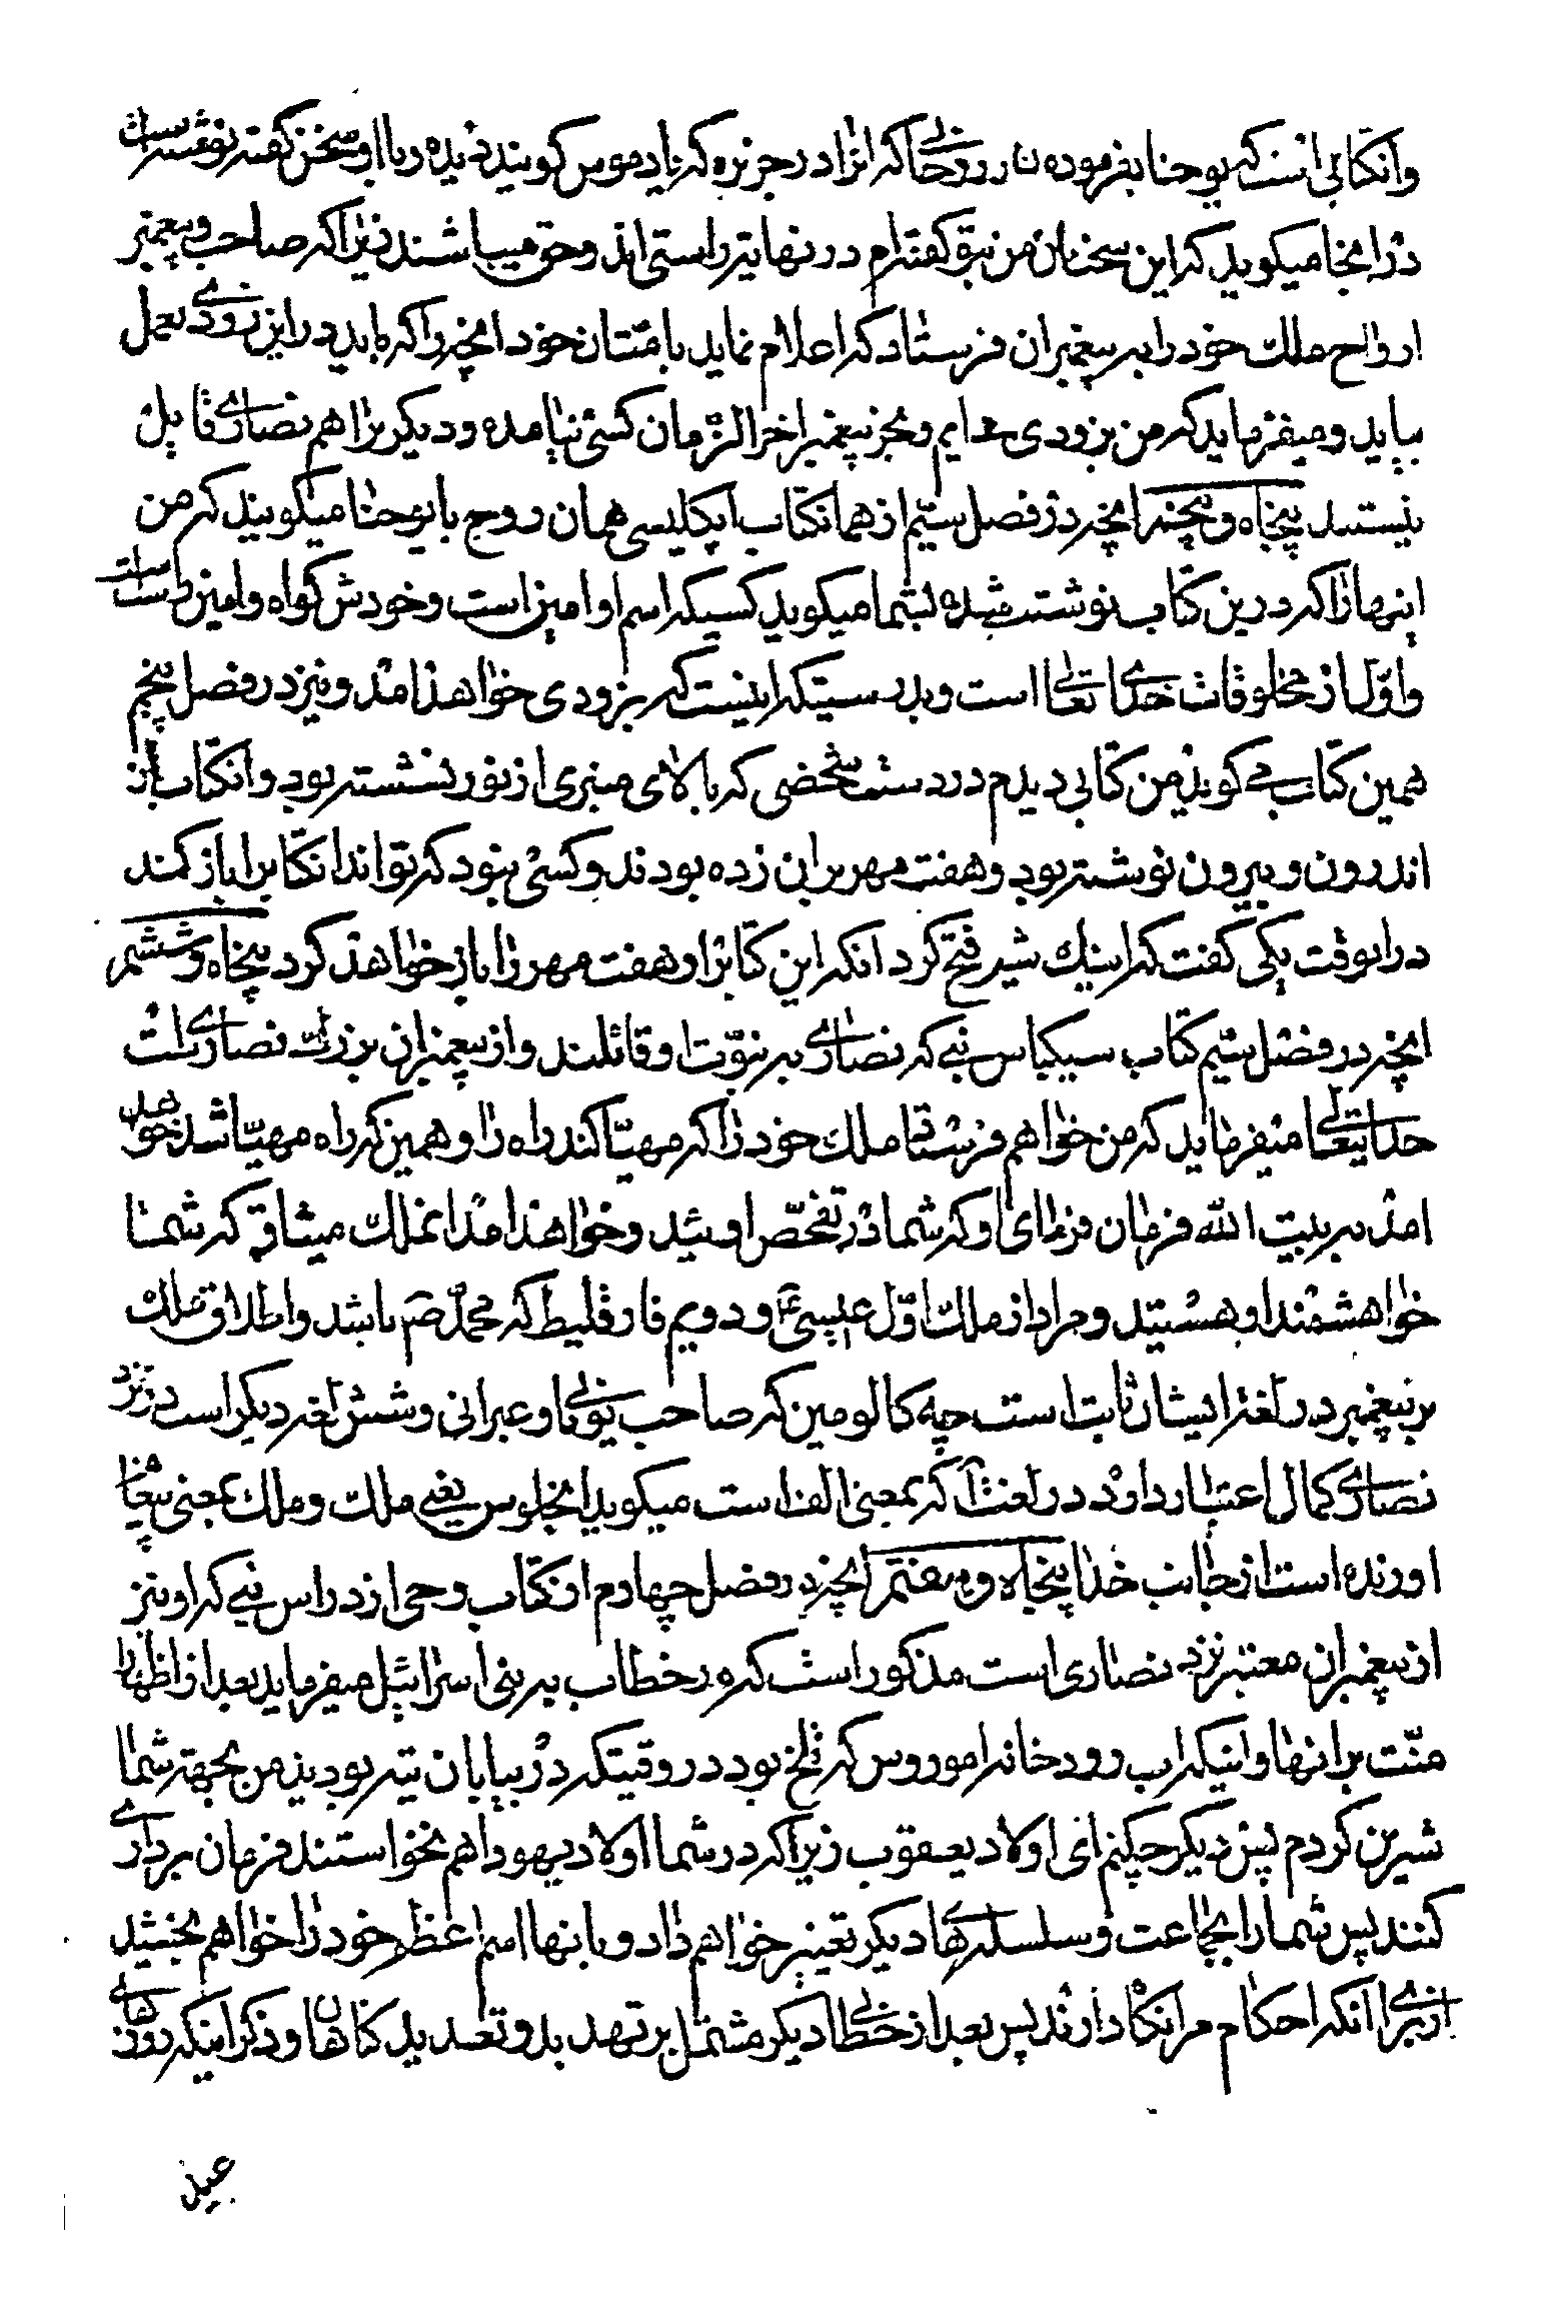 وانکتابی است که یوحنا بفرموده ن رروحا که انرا در جزیره که پادموس کویند دیده و با او سخن کفته نوشته است
در انجا میکوید که این سخنان من بتو کفته‌ام در نهایت راستی اند و حق میباشند زیرا که صاحب و پیغمبر
ارواح ملک خود را به پیغمبران فرستاد که اعلام نماید بامّتان خود انچه را که باید در این زودی بعمل
بیاید و میفرماید که من بزودی می ایم و بجز پیغمبر اخر الزّمان کسی نیامده و دیگر برا هم نصاری قایل
نیستند پنجاه و پنجم انچه در فصل سیّم از همانکتاب اپکلیسی همان روح با یوحنا میکویند که من
اینها را که درین کتاب نوشته شده بشما میکوید کسیکه اسم او امین است و خودش کواه و امین راست است
و اوّل از مخلوقات خدای تعالی است و بدرستیکه اینست که بزودی خواهد امد و نیز در فصل پنجم
همین کتاب می کوید من کتابی دیدم در دست شخصی که بالای منبری از نور نشسته بود و انکتاب از
اندرون و بیرون نوشته بود و هفت مهر بران زده بودند و کسی نبود که تواند انکتابرا باز کند
در انوقت یکی کفت که اینک شیر فتح کرد انکه این کتابرا و هفت مهر را باز خواهد کرد پنجاه و ششم
انچه در فصل سیّم کتاب سیکیاس نبی که نصاری به نبوّت او قائلند و از پیغمبران بزرک نصاری است
خدایتعالی میفرماید که من خواهم فرستاد ملک خود را که مهیّا کند راه را و همین که راه مهیّا شد خواهد
امد به بیت الله فرمان فرمای او که شما در تفحّص او ئید و خواهد امد انملک میثاق که شما
خواهشمند او هستید و مراد از ملک اوّل عیسیٰ ع و دویم فارقلیط که محمّد ص باشد و اطلاق ملک
بر پیغمبر در لغت ایشان ثابت است چه کالومین که صاحب یونانی و عبرانی و شش لغه دیکر است و در نزد
نصاری کمال اعتبار دارد در لغت آ که بمعنی الف است میکوید انجلوس یعنی ملک و ملک بمعنی پیغام
اورنده است از جانب خدا پنجاه و هفتم انچه در فصل چهارم از کتاب وحی ازدراس نبی که او نیز
از پیغمبران معتبر نزد نصاری است مذکور است که در خطاب به بنی اسرائیل میفرماید بعد از اظهار
منّت بر انها و اینکه اب رودخانه اموروس که تلخ بود در وقتیکه در بیابان تیه بودید من بجهة شما
شیرین کردم پس دیکر چکنم ای اولاد یعقوب زیرا که در شما اولاد یهودا هم نخواستند فرمان برداری
کنند پس شما را بجماعت و سلسله‌های دیکر تغییر خواهم داد و بانها اسم اعظم خود را خواهم بخشید
از برای انکه احکام مرا نکاه دارند پس بعد از خطابی دیکر مشتمل بر تهدید و تعدید کناهان و ذکر اینکه روکردانی